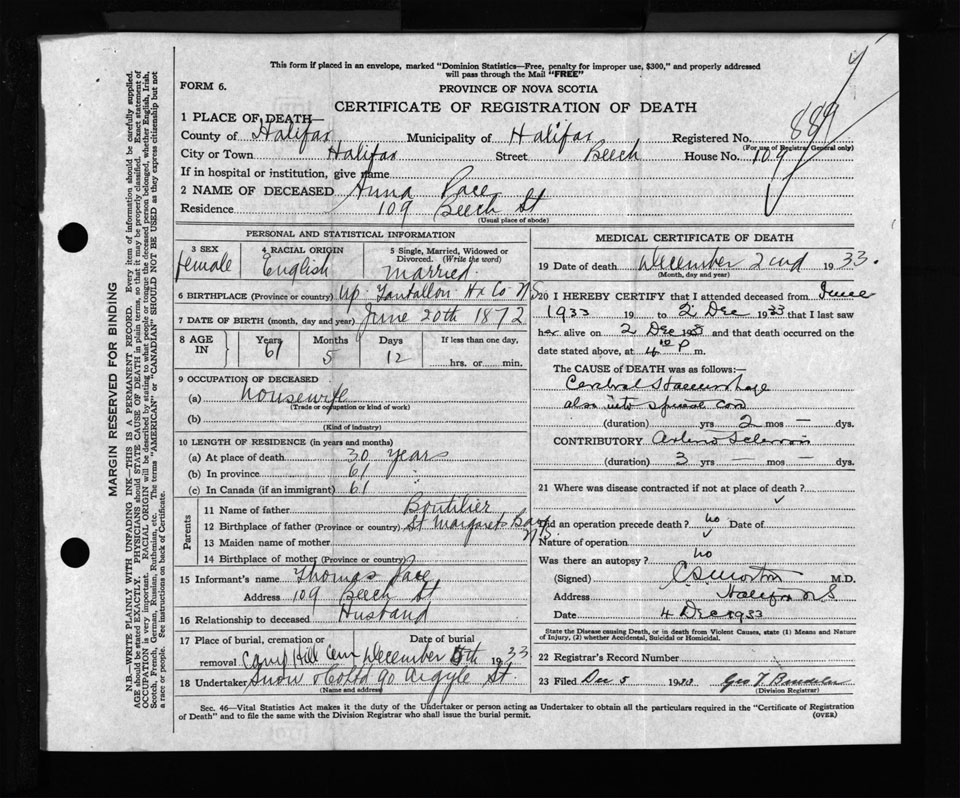 This form if placed in an envelope, marked "Dominion Statistics—Free, penalty for improper use, $300," and properly addressed
will pass through the Mail "FREE"
FORM 6.
PROVINCE OF NOVA SCOTIA
CERTIFICATE OF REGISTRATION OF DEATH
1 PLACE OF DEATH—
County of Halifax Municipality of Halifax Registered No. 889
(For use of Registrar General only)
City or Town Halifax Street Beech House No. 109
If in hospital or institution, give name
2 NAME OF DECEASED Anna Pace
Residence 109 Beech St
(Usual place of abode)
PERSONAL AND STATISTICAL INFORMATION
3 SEX 4 RACIAL ORIGIN 5 Single, Married, Widowed or Divorced. (Write the word)
female English married.
6 BIRTHPLACE (Province or country) Up. Tantallon Hx Co N S
7 DATE OF BIRTH (month, day and year) June 20th 1872
8 AGE IN Years Months Days If less than one day,
61 5 12 hrs. or min.
9 OCCUPATION OF DECEASED
(a) housewife
(Trade or occupation or kind of work)
(b)
(Kind of industry)
10 LENGTH OF RESIDENCE (in years and months)
(a) At place of death 30 years
(b) In province 61 "
(c) In Canada (if an immigrant) 61
Parents
11 Name of father Boutilier
12 Birthplace of father (Province or country) St Margarets Bay N S.
13 Maiden name of mother
14 Birthplace of mother (Province or country)
15 Informant's name Thomas Pace
Address 109 Beech St
16 Relationship to deceased Husband
17 Place of burial, cremation or removal Date of burial
Camp Hill Cem December 5th 1933
18 Undertaker Snow & Co Ltd 90 Argyle St.
(Name and address)
MEDICAL CERTIFICATE OF DEATH
19 Date of death December 2nd 1933.
(Month, day and year)
20 I HEREBY CERTIFY that I attended deceased from June
1933 19 to 2 Dec 1933 that I last saw
her alive on 2 Dec 1933 and that death occurred on the
date stated above, at P m.
The CAUSE of DEATH was as follows:—
Cerebral Haemorrhage
also into spinal cord
(duration) yrs 2 mos — dys.
CONTRIBUTORY Arterio Sclerosis
(duration) 3 yrs — mos — dys.
21 Where was disease contracted if not at place of death?
Did an operation precede death? no Date of
Nature of operation
Was there an autopsy? no
(Signed) C S Morton M.D.
Address Halifax N S
Date 4 Dec 1933
State the Disease causing Death, or in death from Violent Causes, state (1) Means and Nature
of Injury, (2) whether Accidental, Suicidal or Homicidal.
22 Registrar's Record Number
23 Filed Dec 5 1933 Geo T
(Division Registrar)
Sec. 46—Vital Statistics Act makes it the duty of the Undertaker or person acting as Undertaker to obtain all the particulars required in the "Certificate of Registration
of Death" and to file the same with the Division Registrar who shall issue the burial permit.
(OVER)
MARGIN RESERVED FOR BINDING
N.B.—WRITE PLAINLY WITH UNFADING INK—THIS IS A PERMANENT RECORD. Every item of information should be carefully supplied.
AGE should be stated EXACTLY. PHYSICIANS should STATE CAUSE OF DEATH in plain terms, so that it may be properly classified. Exact statement of
OCCUPATION is very important. RACIAL ORIGIN will be described by stating to what people or tongue the deceased person belonged, whether English, Irish,
Scotch, French, German, Russian, Ruthenian, etc. The terms "AMERICAN" or "CANADIAN" SHOULD NOT BE USED as they express citizenship but not
a race or people. See instructions on back of Certificate.